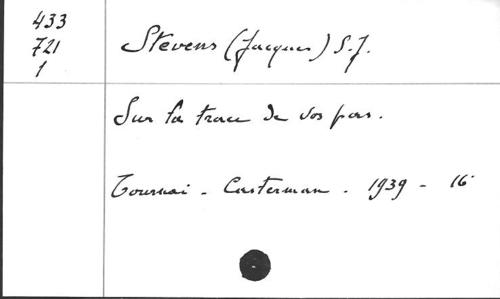 433
721
1
Stevens (Jacques) S.J.
Sur la trace de vos pas.
Tournai - Casterman - 1939 - 16°